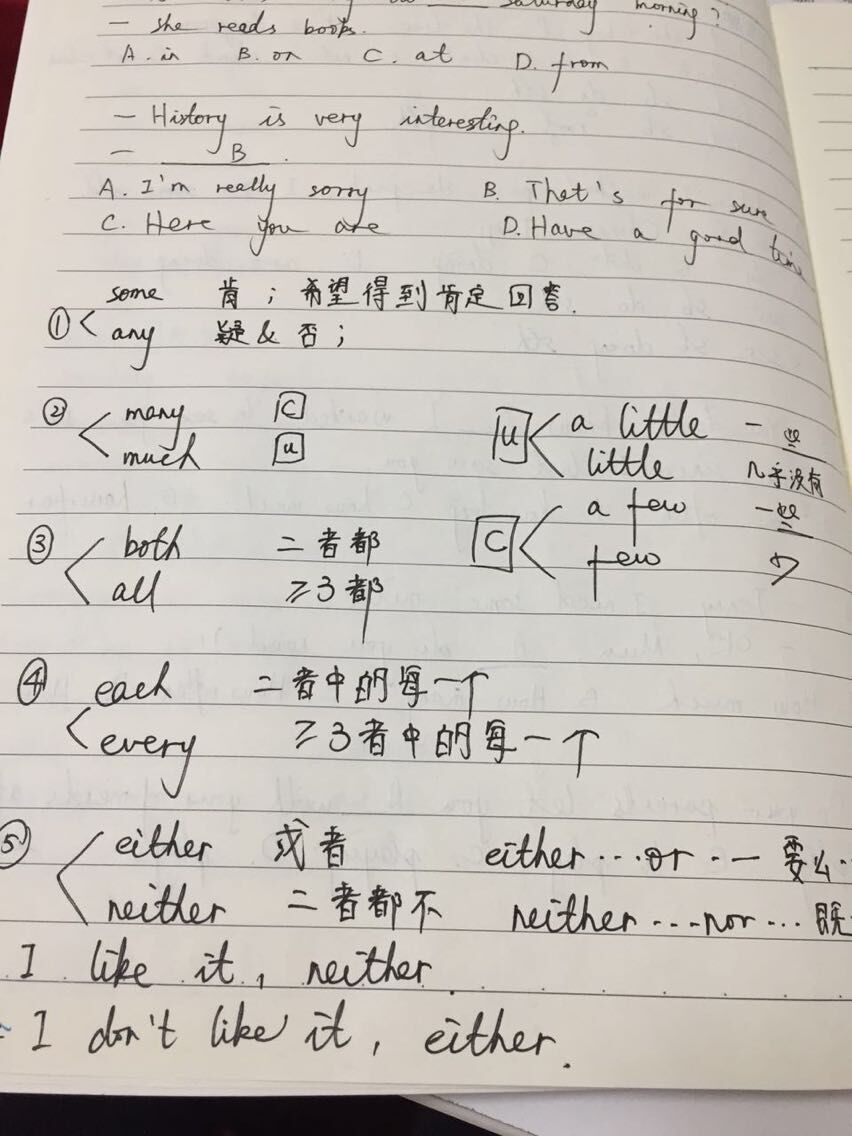 Saturday morning?
— She reads books.
A. in B. on C. at D. from
— History is very interesting.
— B.
A. I'm really sorry B. That's for sure
C. Here you are D. Have a good time
① some 肯；希望得到肯定回答.
any 疑 & 否；
② many C
much u
u a little 一些
little 几乎没有
③ both 二者都
all ≥3都
C a few 一些
few
④ each 二者中的每一个
every ≥3者中的每一个
⑤ either 或者 either...or... 要么
neither 二者都不 neither...nor... 既
I like it, neither.
I don't like it, either.